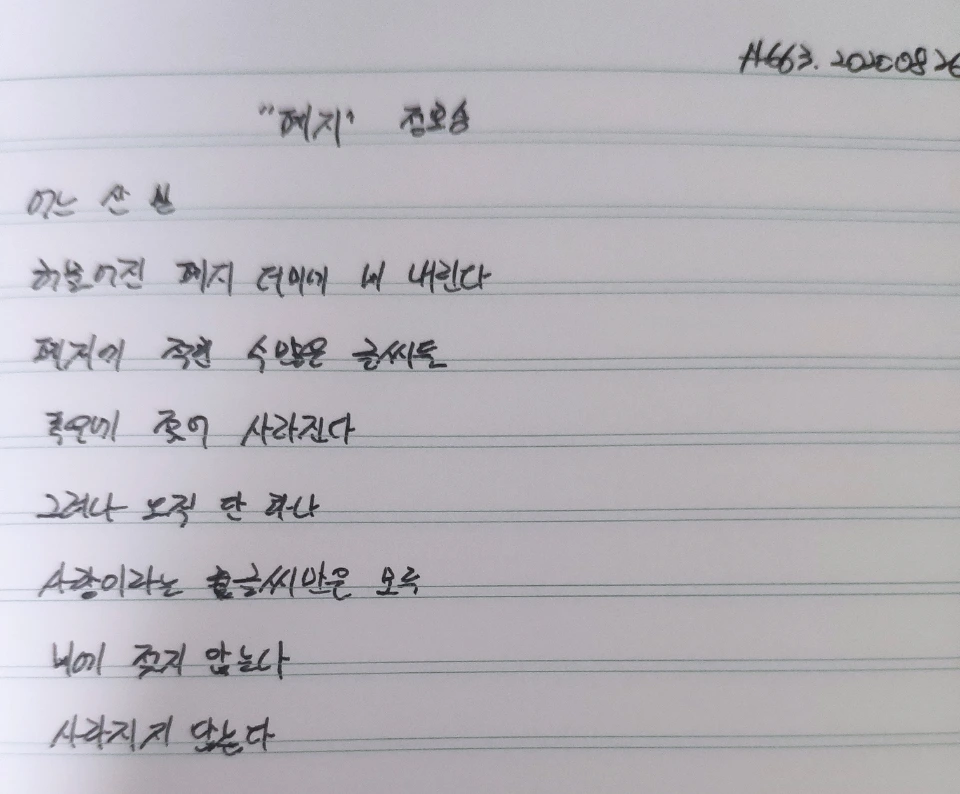 #663. 20200826
"폐지" 정호승
어느 산
허물어진 폐지 더미에 비 내린다
폐지에 적힌 수많은 글씨들
폭우에 젖어 사라진다
그러나 오직 단 하나
사랑이라는 글씨만은 모두
비에 젖지 않는다
사라지지 않는다